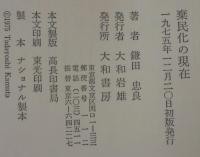 棄民化の現在
一九七五年一二月二〇日初版発行
著者 鎌田忠良
発行者 大和岩雄
発行所 大和書房
東京都文京区関口一―三三
郵便番号
電話(二〇三)四五一一
振替東京六―六四二二七
本文製版 高長印書局
本文印刷 東光印刷
製本 ナショナル製本
©1975 Tadayoshi Kamata